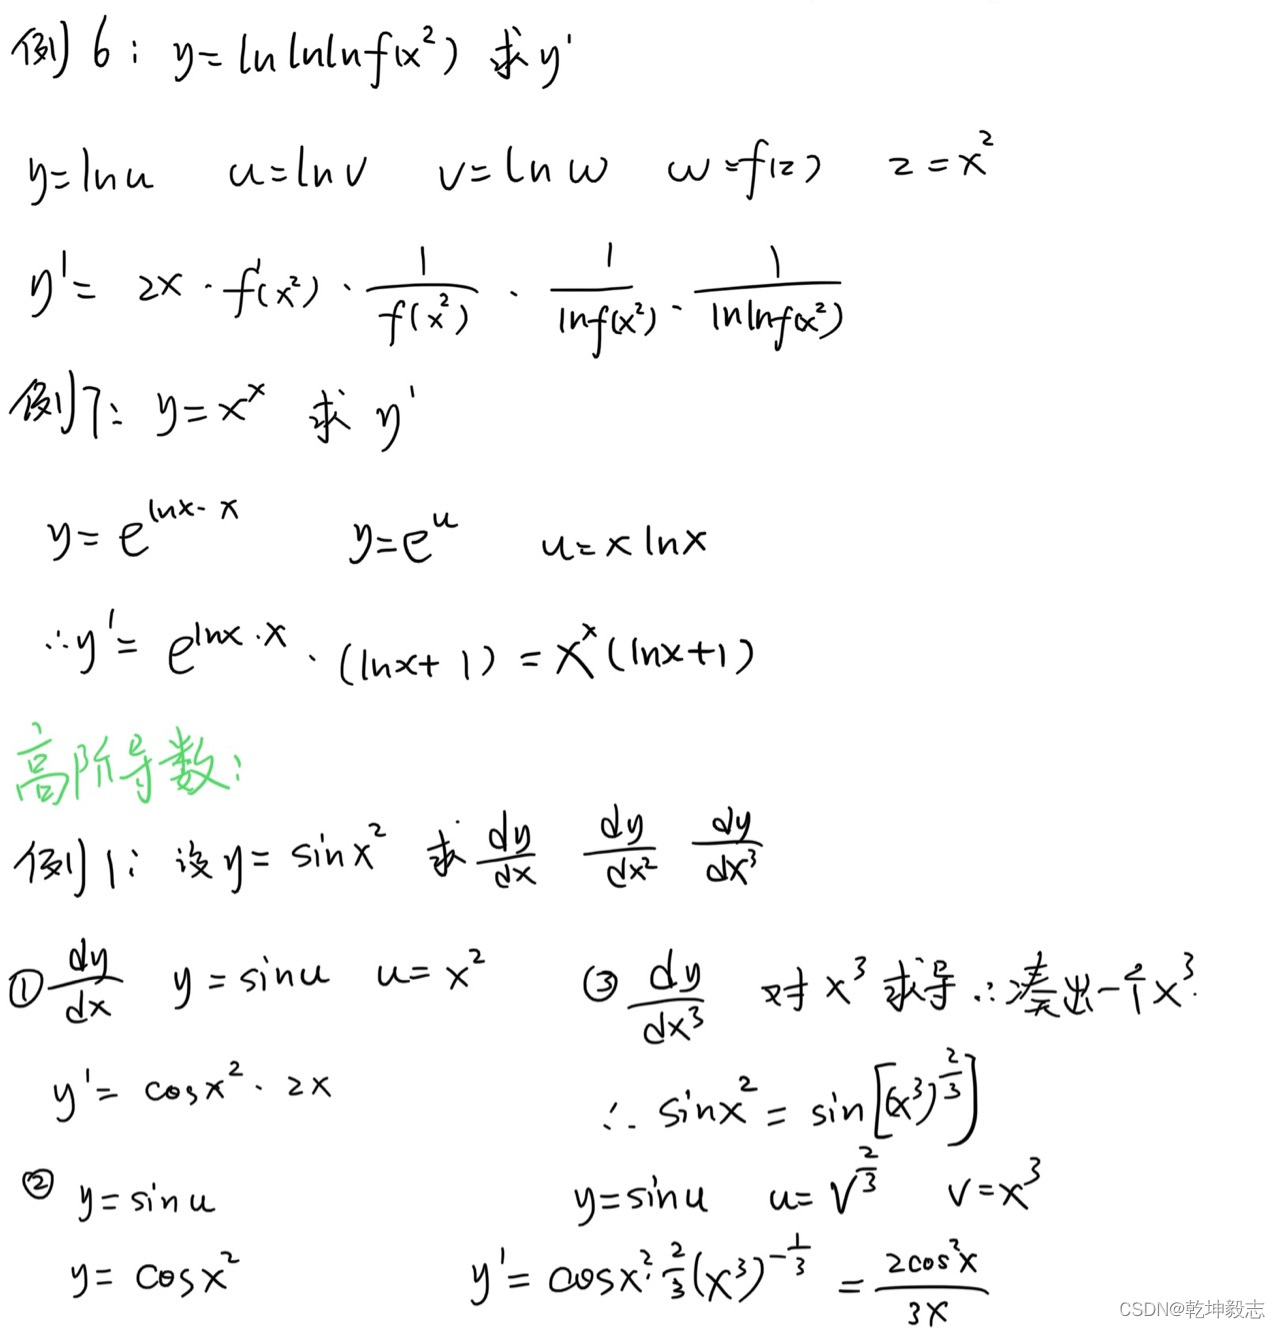 例6: y=ln lnln f(x²) 求y'
y=lnu u=lnv v=lnw w=f(z) z=x²
y'= 2x · f'(x²) · 1/f(x²) · 1/lnf(x²) · 1/lnlnf(x²)
例7: y=x^x 求 y'
y=e^(lnx·x) y=e^u u=x lnx
∴y'= e^(lnx·x) · (lnx+1) = x^x (lnx+1)
高阶导数:
例1: 设y= sinx² 求 dy/dx dy/dx² dy/dx³
① dy/dx y=sinu u=x²
y'= cosx² · 2x
② y=sinu
y= cosx²
③ dy/dx³ 对x³求导∴凑出一个x³.
∴ sinx² = sin[(x³)^(2/3)]
y=sinu u=v^(2/3) v=x³
y'= cosx²· 2/3 (x³)^(-1/3) = 2cos²x/3x
CSDN@乾坤毅志